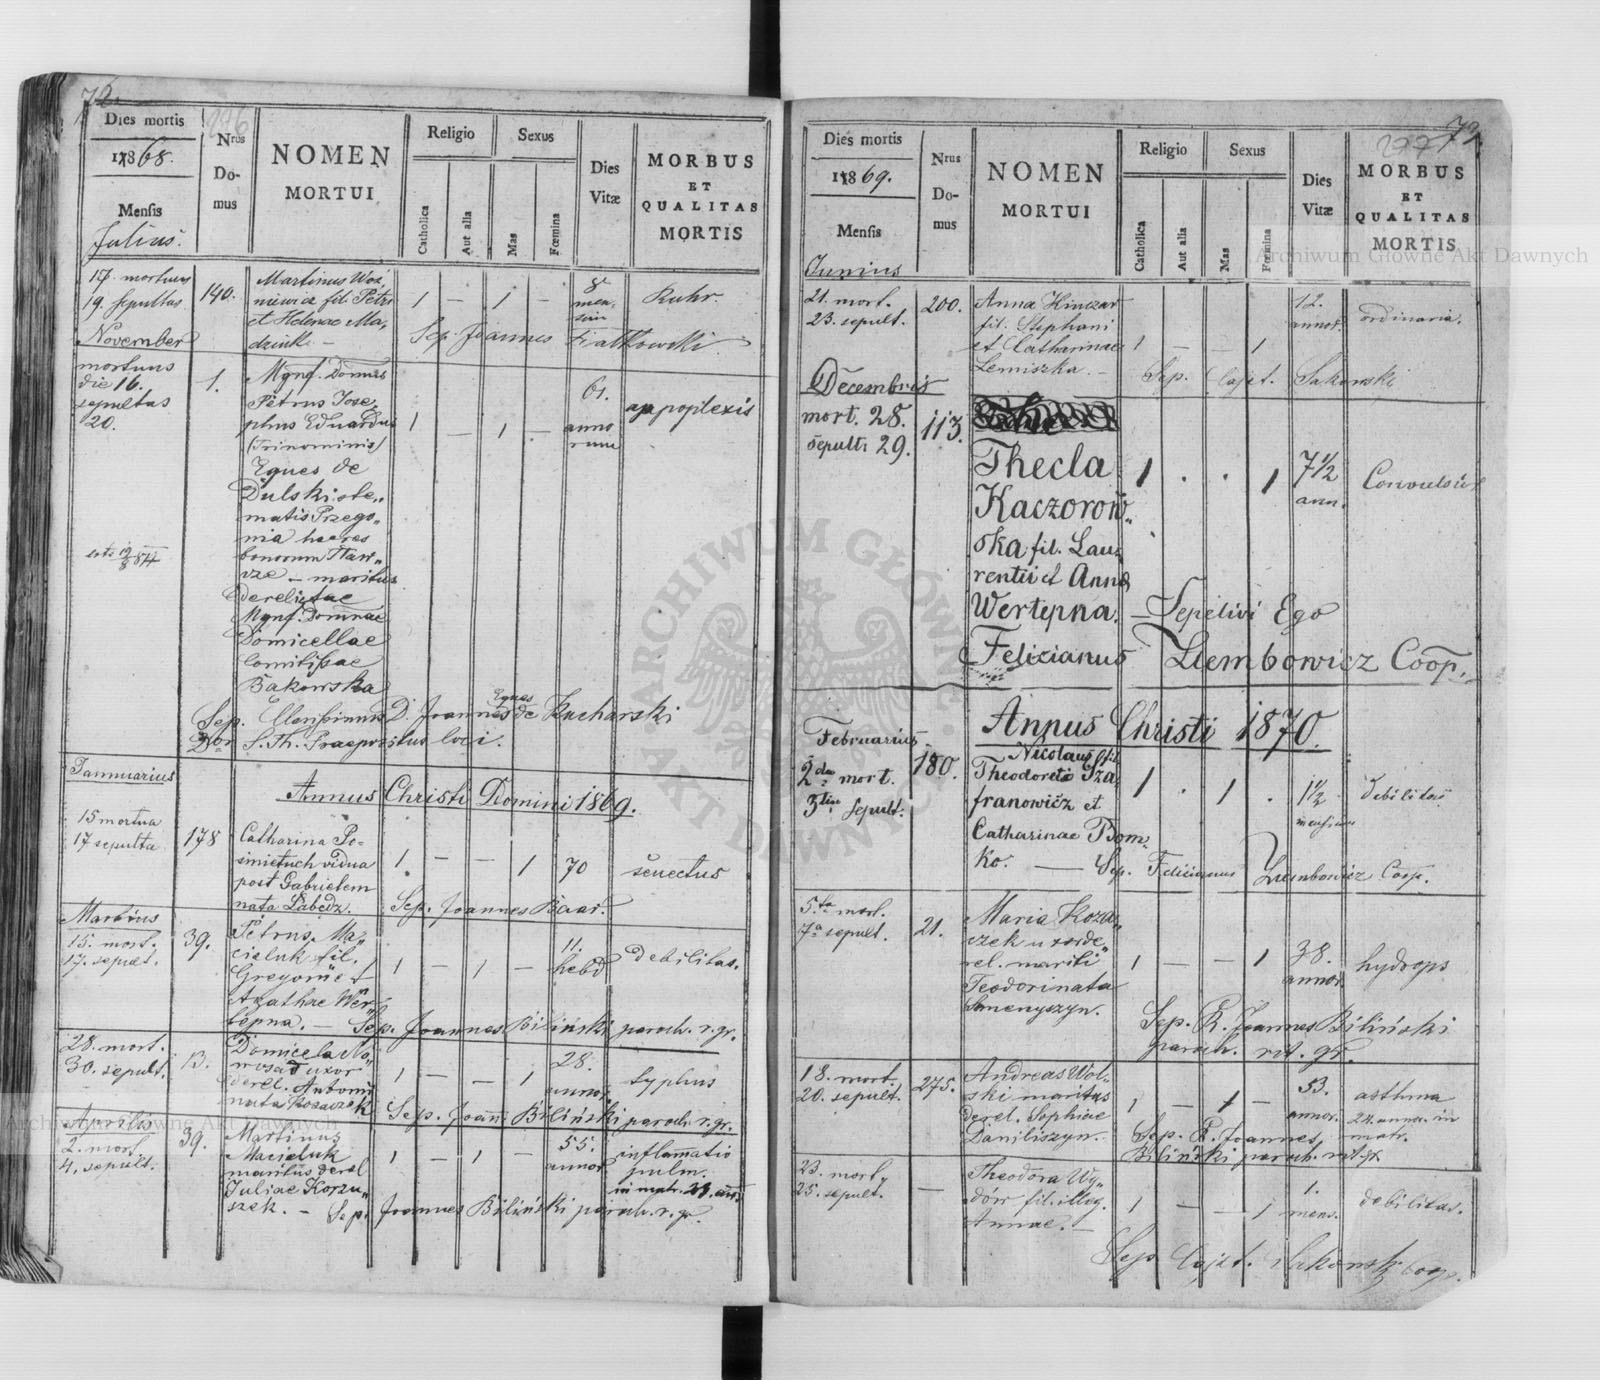 72.
276
Dies mortis
1868.
Mensis
Julius.
Nrus
Do-
mus
NOMEN
MORTUI
Religio
Catholica
Aut alia
Sexus
Mas
Fœmina
Dies
Vitæ
MORBUS
ET
QUALITAS
MORTIS
17. mortuus
19. sepultus
140.
Martinus Woź,
niewicz fil. Petri
et Helenae Ma,
dziuk. –
1 – 1 –
8
men,
sium
Ruhr.
Sep. Joannes Fiatkowski.
November
mortuus
die 16.
sepultus
20.
1.
Mgnf. Domnus
Petrus Jose,
phus Eduardus
(Trinominis)
Eques de
Dulski ste,,
matis Przego,,
nia haeres
bonorum
– maritus
derelictae
Mgnf. Domnae
Domicellae
Comitissae
Bakowska
1 – 1 –
61.
anno
rum
appoplexis
Sep. Clerissimus D. Joannes Eques de Kucharski
Dor S. Th. Praepositus loci.
Annus Christi Domini 1869.
Jannuarius
15 mortua
17 sepulta
178
Catharina Po-
śmietuch vidua
post Gabrielem
nata Łabędz.
1 – – 1
70
senectus
Sep. Joannes Baar.
Martius
15. mort.
17. sepult.
39.
Petrus Ma,,
cieluk fil.
Gregorii et
Agathae Wer,,
tepna. –
1 – 1 –
11.
hebd
debilitas.
Sep. Joannes Biliński paroch. r. gr.
28. mort.
30. sepult.
13.
Domicela No,,
wosad uxor
derel. Antonii
nata Kozaczek
1 – – 1
28.
annor.
typhus
Sep. Joann: Biliński paroch. r. gr.
Aprilis
2. mort.
4. sepult.
39.
Martinus
Macieluk
maritus derel
Juliae Korzu,,
szek. –
1 – 1 –
55.
annor
inflamatio
pulm.
in matr. 29. ann.
Sep. Joannes Biliński paroch. r. gr.
73.
277
Dies mortis
1869.
Mensis
Junius
Nrus
Do-
mus
NOMEN
MORTUI
Religio
Catholica
Aut alia
Sexus
Mas
Fœmina
Dies
Vitæ
MORBUS
ET
QUALITAS
MORTIS
21. mort.
23. sepult.
200.
Anna Hinczar
fil. Stephani
et Catharinae
Lemiszka. –
1 – – 1
12.
annor.
ordinaria.
Sep. Cajet. Sakowski
Decembris
mort. 28.
sepult: 29.
113.
Thecla
Kaczorow,,
ska fil. Lau,
rentii et Anna
Wertepna.
1 . . 1
7 1/2
ann.
Convulsio
– Sepelivi Ego
Felicianus Ziembowicz Coop.
Annus Christi 1870.
Februarius
2da mort.
3tia sepult:
180.
Nicolaus fil.
Theodoreti Sza,
franowicz et
Catharinae Bom,
ko. –
1 . 1 .
1 1/2
mensium
debilitas
Sep. Felicianus Ziembowicz Coop.
5ta mort.
7a sepult.
21.
Maria Koza,,
czek uxor de,,
rel. mariti
Teodori nata
Semenyszyn.
1 – – 1
38.
annor.
hydrops
Sep. R. Joannes Biliński
paroch. rit. gr.
18. mort.
20. sepult.
275.
Andreas Wol,
ski maritus
derel. Sophiae
Daniliszyn.
1 – 1 –
53.
annor.
asthma
24. annor. in
matr.
Sep. R. Joannes
Biliński paroch. rit. gr.
23. mort.
25. sepult.
–
Theodora Wy,,
dor fil. illeg.
Annae. –
1 – – 1
1.
mens.
debilitas.
Sep. Cajet. Sakowski coop.
ARCHIWUM GŁÓWNE AKT DAWNYCH
Archiwum Główne Akt Dawnych
Archiwum Główne Akt Dawnych